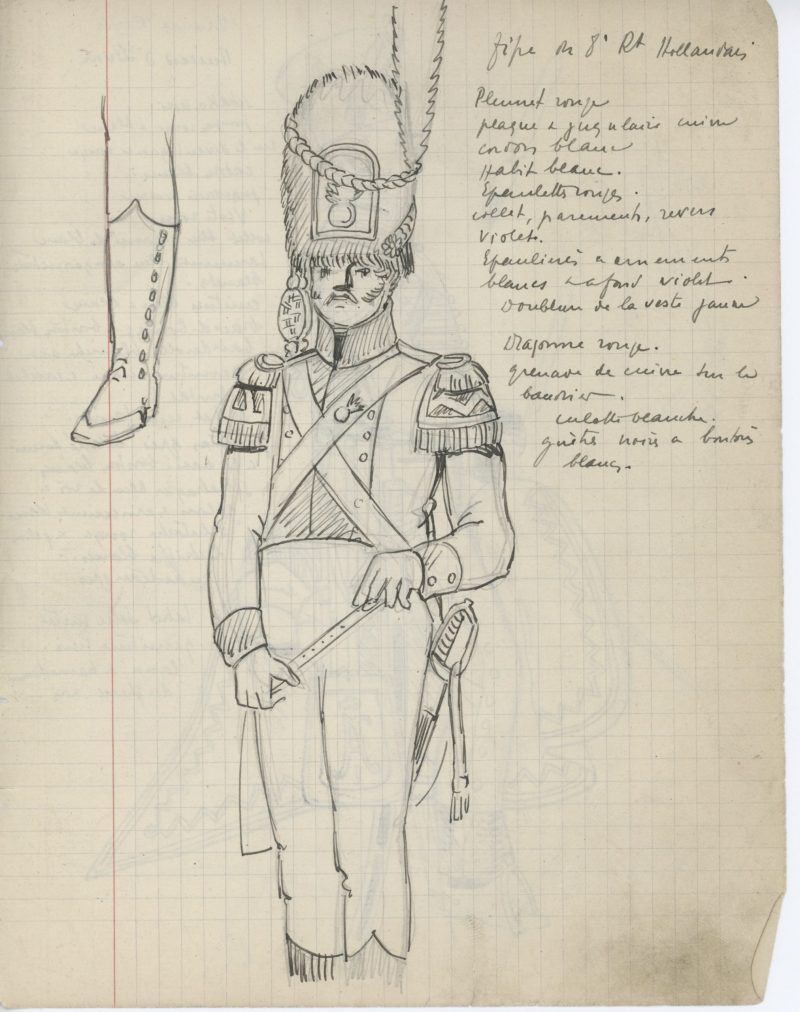 fifre du 8e Rt Hollandais
Plumet rouge
plaque & jugulaire cuivre
cordons blanc
Habit blanc.
Epaulettes rouges.
collet, parements, revers
violets.
Epaulières a ornements
blancs & a fond violet.
Doublure de la veste jaune
Dragonne rouge.
grenade de cuivre sur le
baudrier.
culotte blanche.
guêtres noires a boutons
blancs.